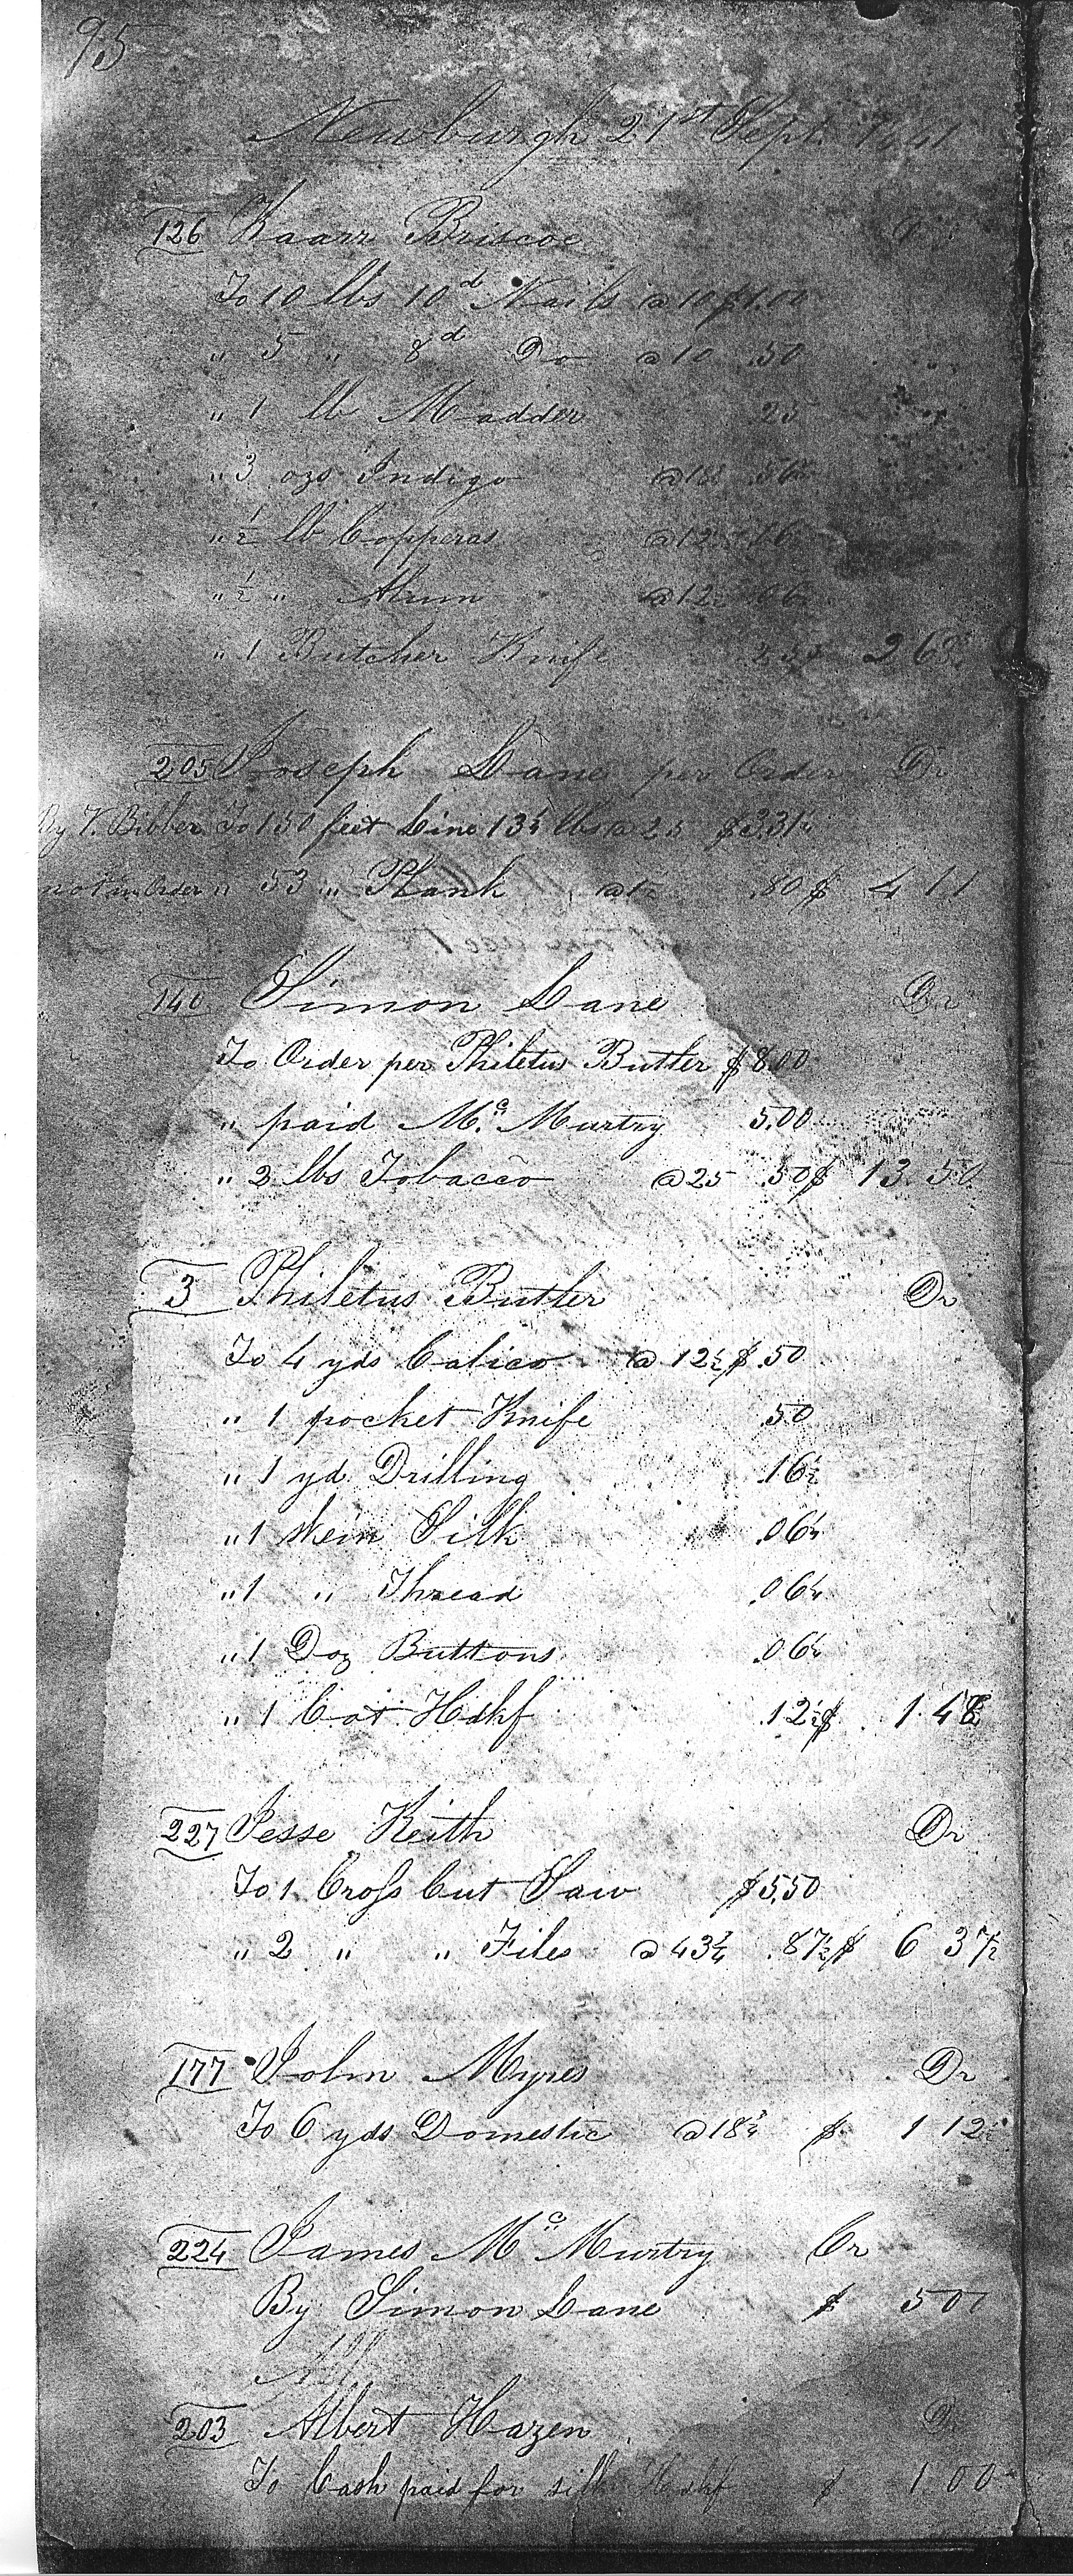 95
Newburgh 21st Sept. 1841
126 Kaarr Briscoe Dr
To 10 lbs 10d Nails @ 10 $1.00
" 5 " 8d Do @ 10 .50
" 1 lb Madder 25
" 3 ozs Indigo @ 18¾ 56¼
" ½ lb Copperas @ 12½
" ½ " Alum @ 12½ 06¼
" 1 Butcher Knife 25 2 68¾
205 Joseph Lane per Order Dr
By V. Bibber To 150 feet Line 13¼ lbs @ 25 $3.31¼
not in Order " 53 " Plank @ 1½ .80 $ 4 11
140 Simon Lane Dr
To Order per Philetus Butler $8.00
" paid Mc Murtry 5.00
" 2 lbs Tobacco @ 25 .50 $ 13.50
3 Philetus Butler Dr
To 4 yds Calico @ 12½ $ .50
" 1 pocket Knife .50
" 1 yd Drilling .16½
" 1 skein Silk .06¼
" 1 " Thread .06¼
" 1 Doz Buttons .06¼
" 1 Cot Hdkf .12½ $ 1.48
227 Jesse Keith Dr
To 1 Cross Cut Saw $5.50
" 2 " " Files @ 43¾ .87½ $ 6 37½
177 John Myres Dr
To 6 yds Domestic @ 18¾ $ 1 12½
224 James Mc Murtry Cr
By Simon Lane $ 5 00
203 Albert Hazen Dr
To Cash paid for silk Hdkf $ 1 00